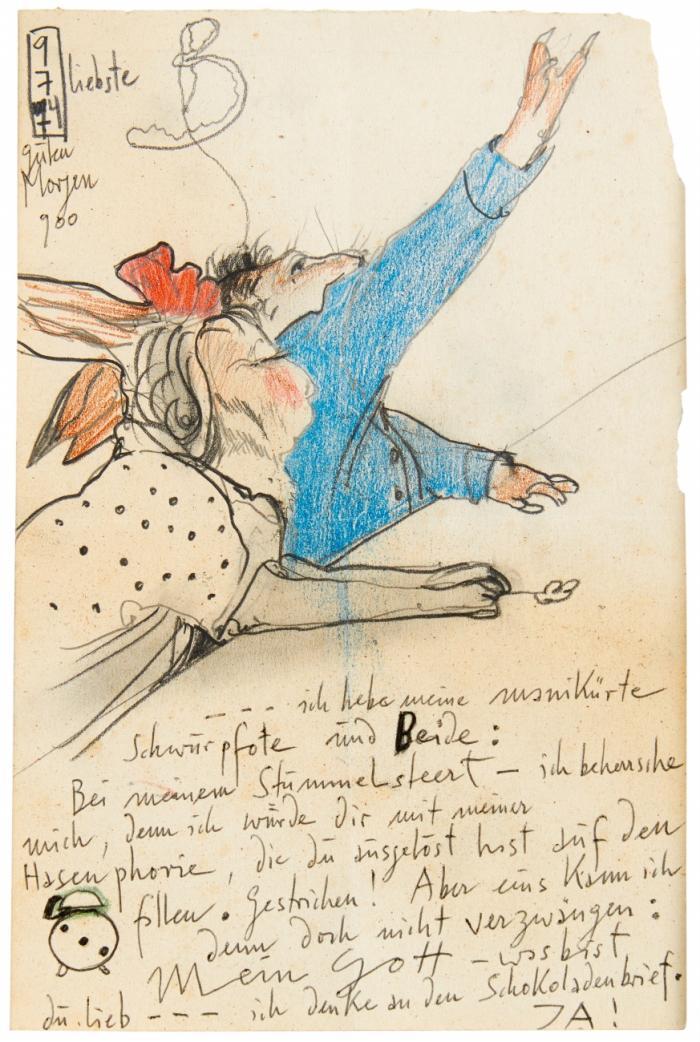 9
7
74
liebste B
guten
Morgen
9 00
--- ich hebe meine manikürte
Schwurpfote und Beide:
Bei meinem Stummelsteert – ich beherrsche
mich, denn ich würde dir mit meiner
Hasenphorie, die du ausgelöst hast auf den
fallen. Gestrichen! Aber eins kann ich
denn doch nicht verzwängen:
Mein Gott – was bist
du lieb --- ich denke an den Schokoladenbrief.
JA!